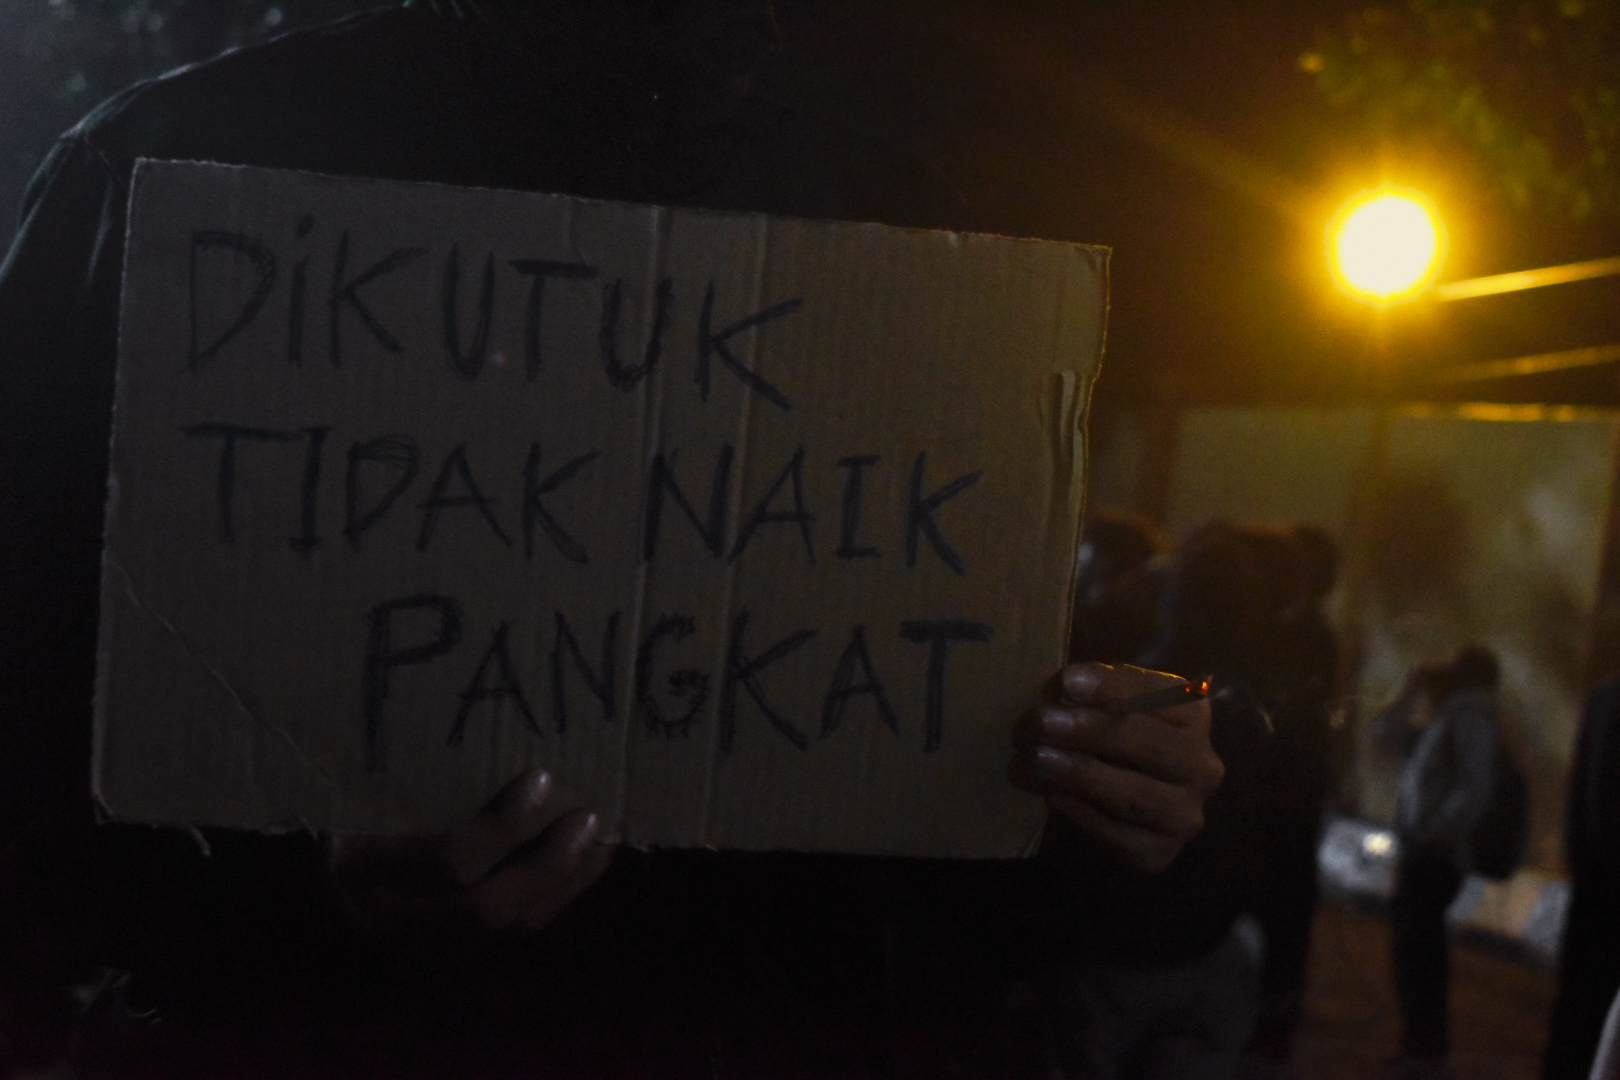 DiKUTUK
TIDAK NAIK
PANGKAT